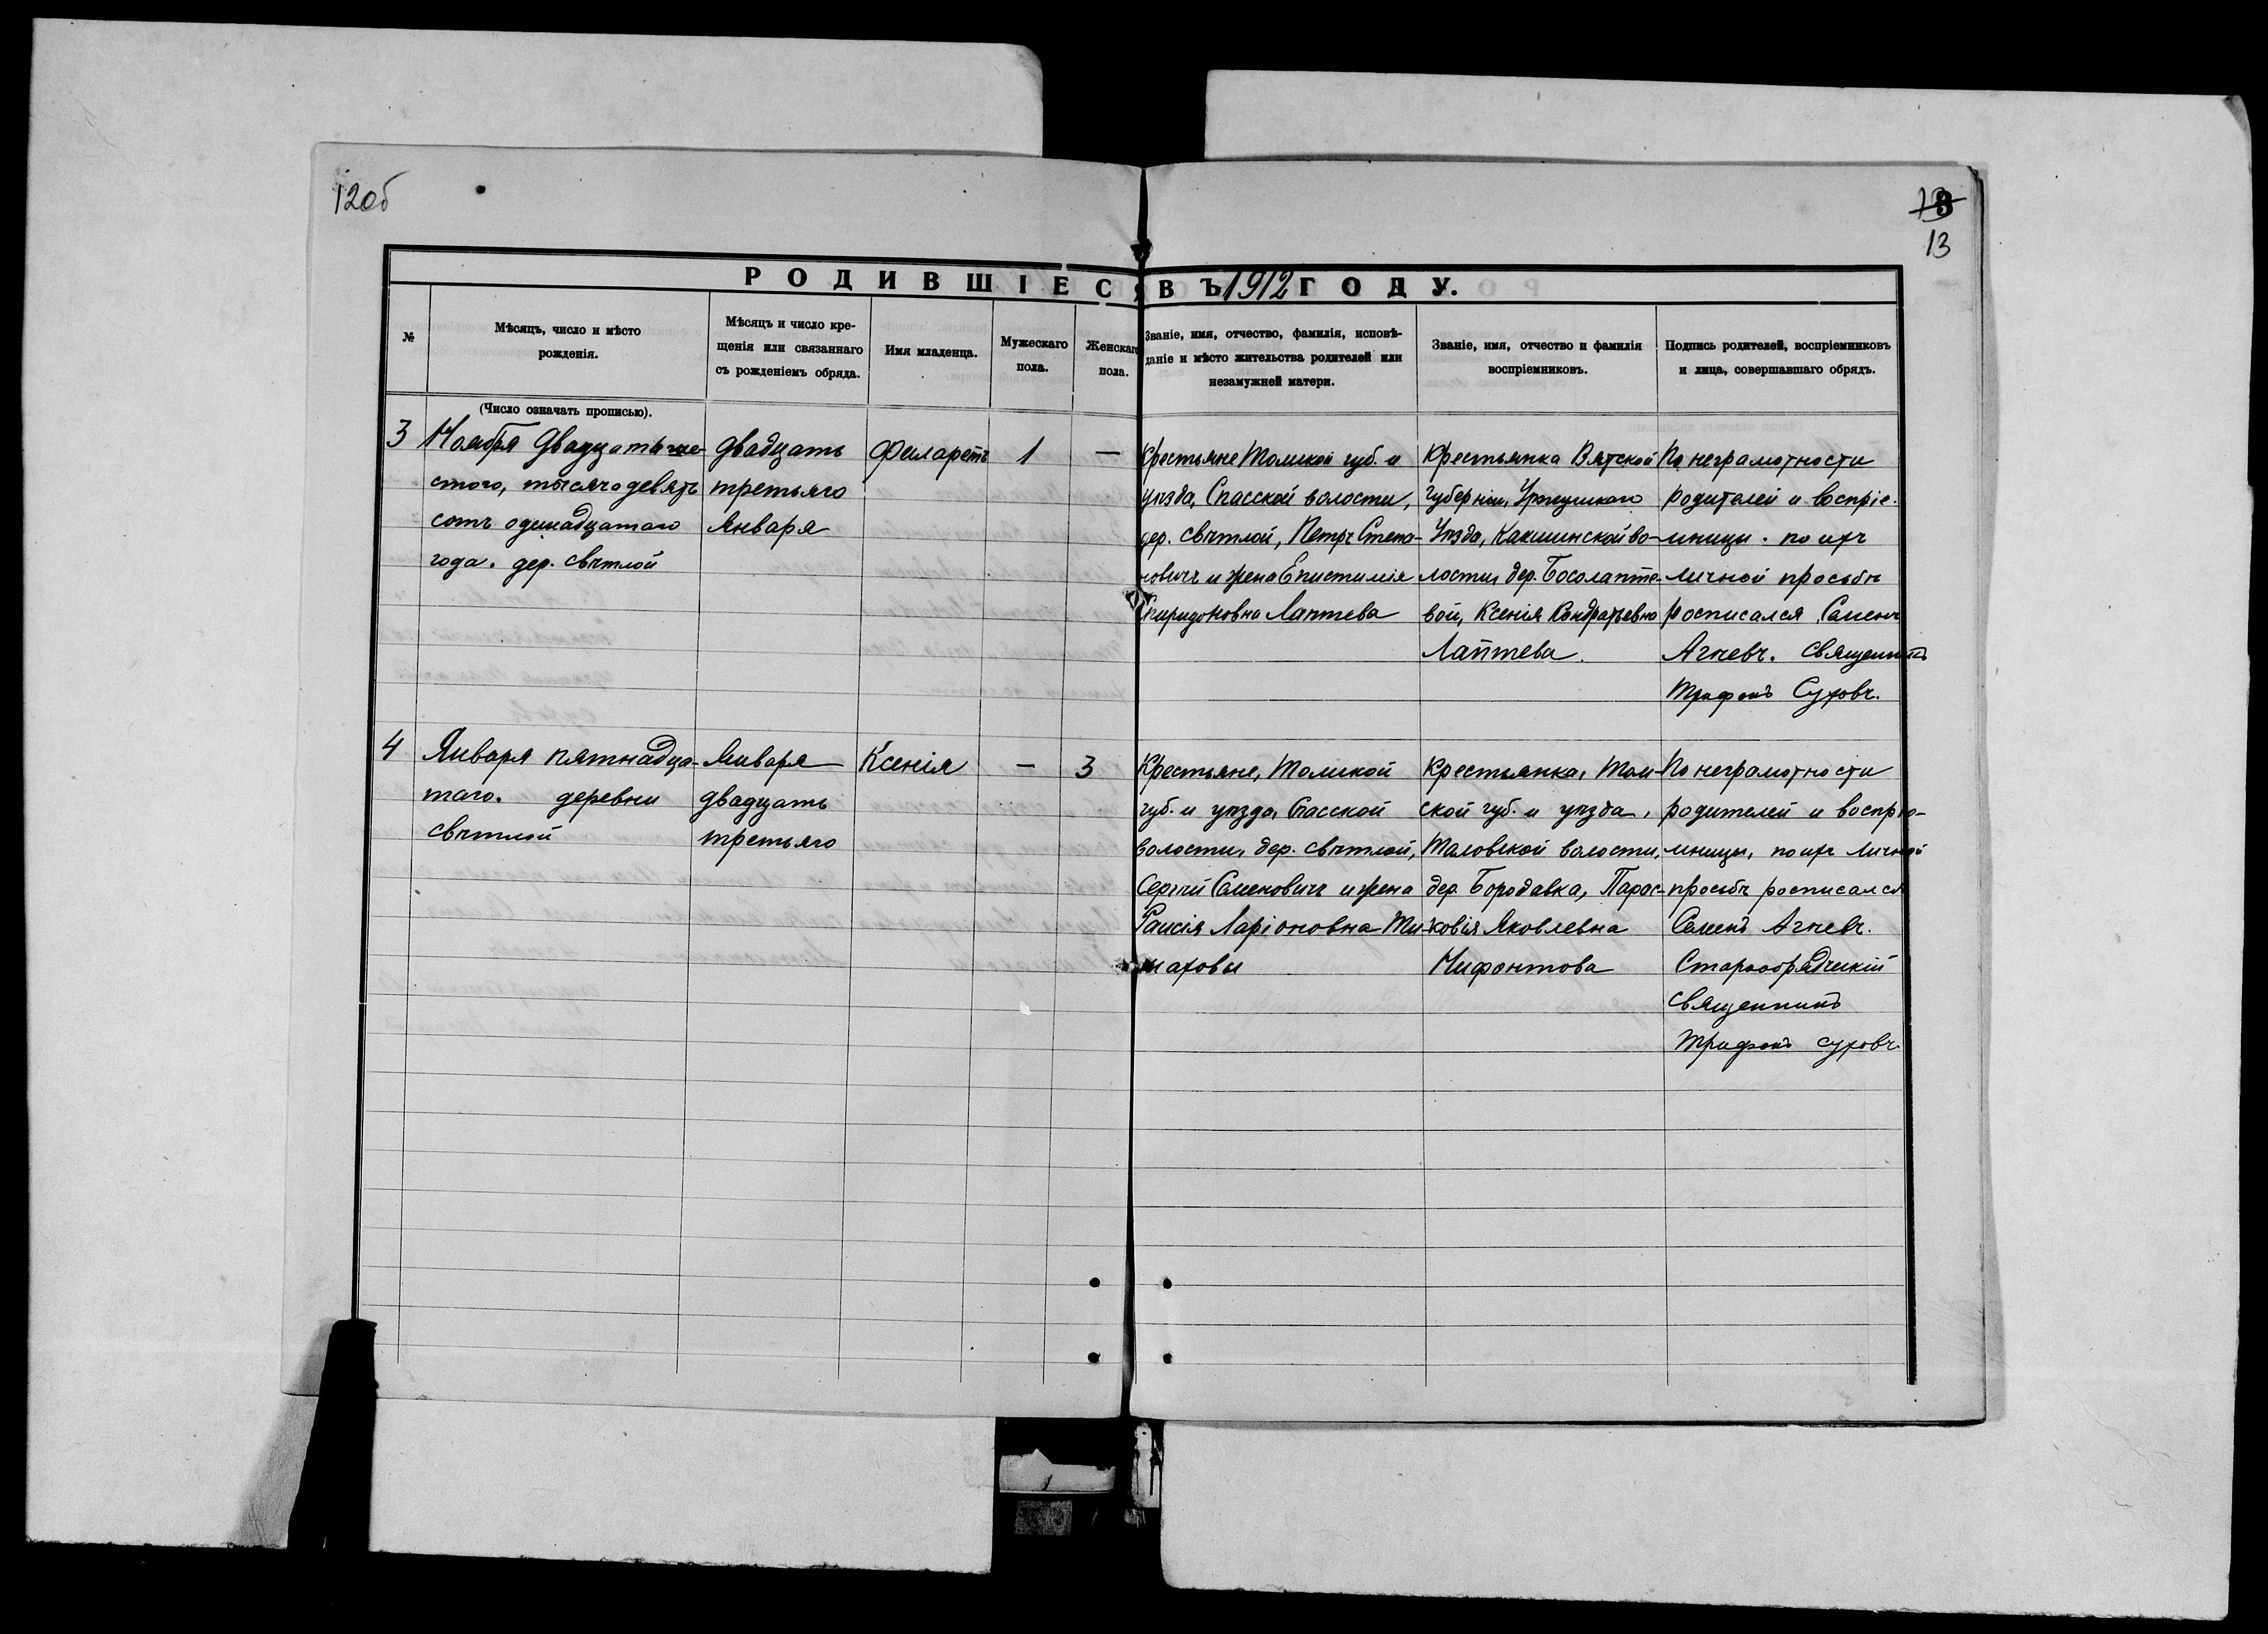 12об
13
РОДИВШІЕСЯ ВЪ 1912 ГОДУ.
№
Мѣсяцъ, число и мѣсто
рожденія.
Мѣсяцъ и число кре-
щенія или связаннаго
съ рожденіемъ обряда.
Имя младенца.
Мужескаго
пола.
Женскаго
пола.
Званіе, имя, отчество, фамилія, исповѣ-
даніе и мѣсто жительства родителей или
незамужней матери.
Званіе, имя, отчество и фамилія
воспріемниковъ.
Подпись родителей, воспріемниковъ
и лица, совершавшаго обрядъ.
(Число означать прописью).
3
Ноября двадцать ше-
стого, тысяча девять
сотъ одинадцатаго
года. дер. свѣтлой
двадцать
третьяго
Января
Филаретъ
1
—
Крестьяне Томской губ. и
уѣзда, Спасской волости,
дер. свѣтлой, Петръ Степа-
новичъ и жена Епистимія
Спиридоновна Лаптева
Крестьянка Вятской
губерніи, Уржумскаго
Уѣзда, Какшинской во-
лости, дер. Босолапте-
вой, Ксенія Кондратьевна
Лаптева.
По неграмотности
родителей и воспріе-
мницы. по ихъ
личной просьбѣ
росписался Семенъ
Агневъ. Священникъ
Трифонъ Суховъ.
4
Января пятнадца-
таго. деревни
свѣтлой
Января
двадцать
третьяго
Ксенія
—
3
Крестьяне, Томской
губ. и уѣзда, Спасской
волости, дер. свѣтлой,
Сергѣй Семеновичъ и жена
Раисія Ларіоновна Ти-
маховы
Крестьянка, Том-
ской губ. и уѣзда,
Таловской волости,
дер. Бородавка, Парас-
ковія Яковлевна
Нифонтова
По неграмотности
родителей и воспріе-
мницы, по ихъ личной
просьбѣ росписался
Семенъ Агневъ.
Старообрядческій
священникъ
Трифонъ Суховъ